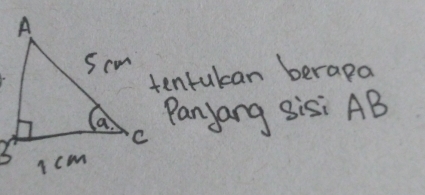 A
5 cm
tentukan berapa
Panjang sisi AB
a.
B
C
1 cm